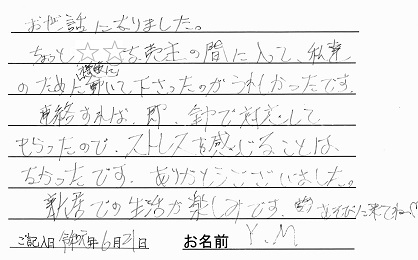 お世話になりました。
ちょっと☆☆な売主の間に入って、私達
のために積極的に動いて下さったのがうれしかったです。
連絡すれば、即、全部で対応して
もらったので、ストレスを感じることは
なかったです。ありがとうございました。
新居での生活が楽しみです。あそびに来てね
ご記入日 年6月21日 お名前 Y.M